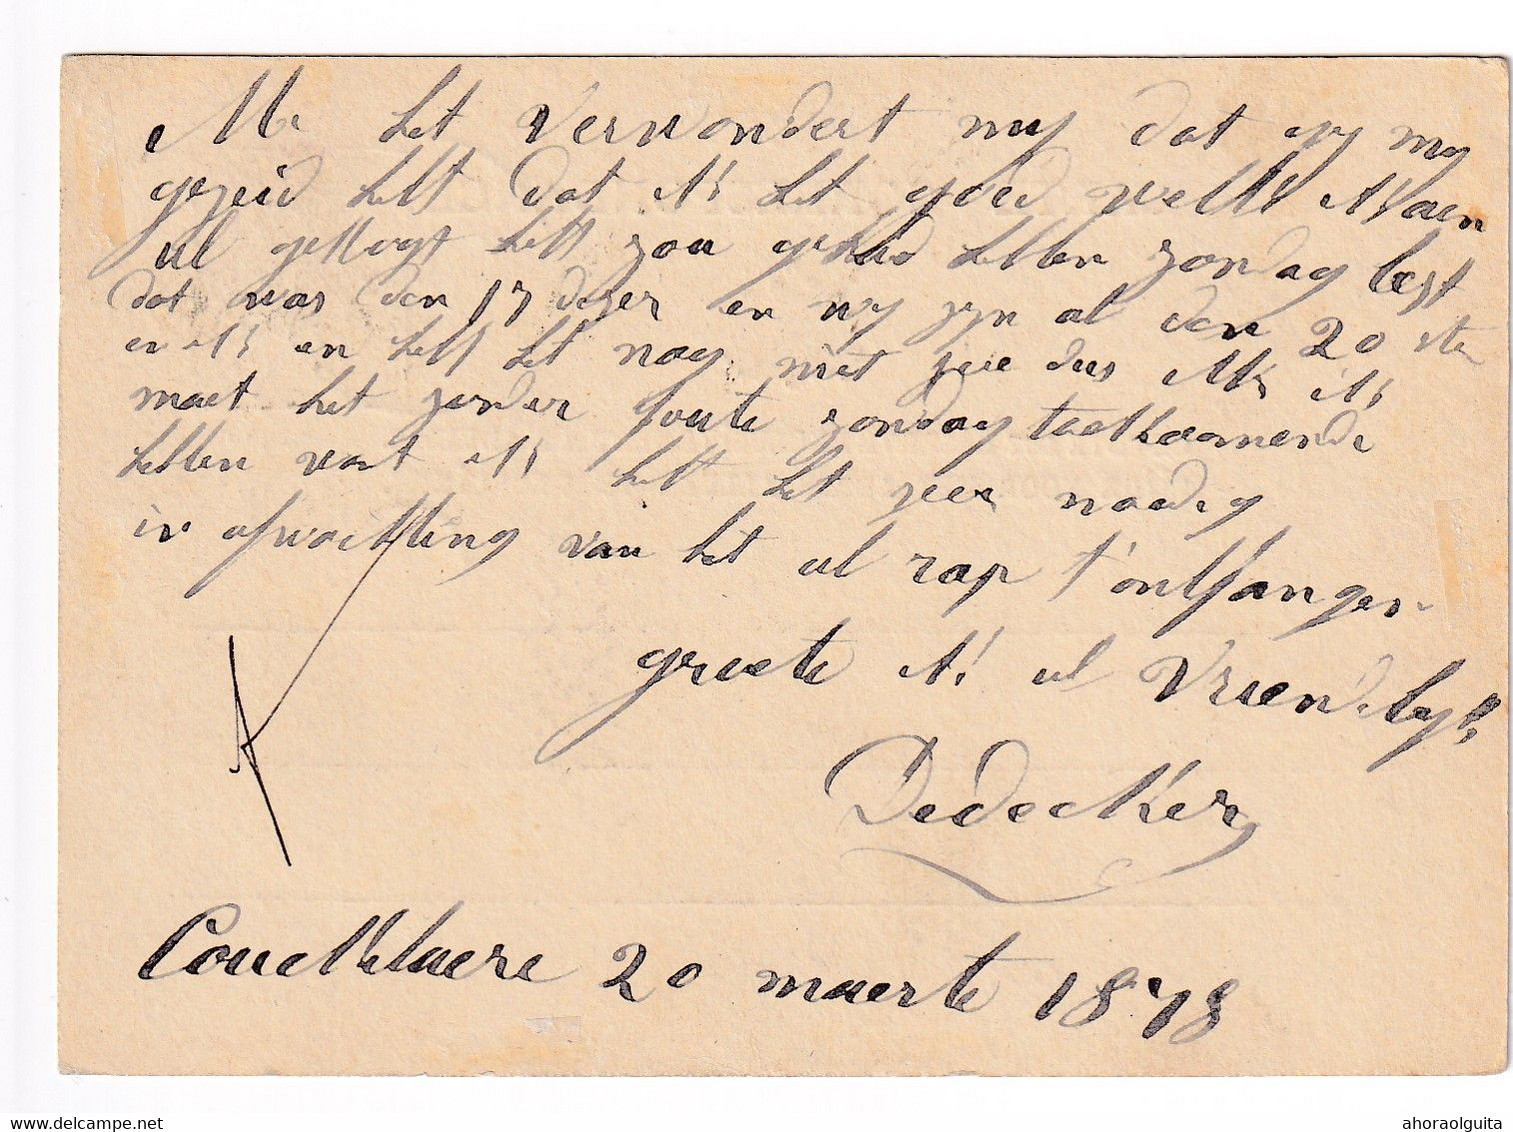 Mr het verwondert my dat gy my
gezeid hebt dat ik het goed welke ik aen
ul gekogt heb zou gehad hebben zondag lest
dat was den 17 dezer en wy zyn al den 20 ste
en ik en heb het nog niet zeie dus Mr ik
moet het zonder foute zondag toekoomende
hebben want ik heb het zeer noodig
in afwachting van het ul rap t'ontfangen
groete ik ul vriendelyk
Dedecker
Couckelaere 20 maerte 1878
ahoraolguita